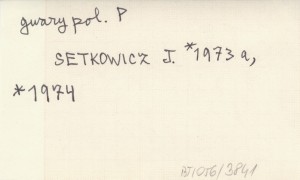 gwary pol. P
SETKOWICZ J. *1973 a,
*1974
BJ1076/3841